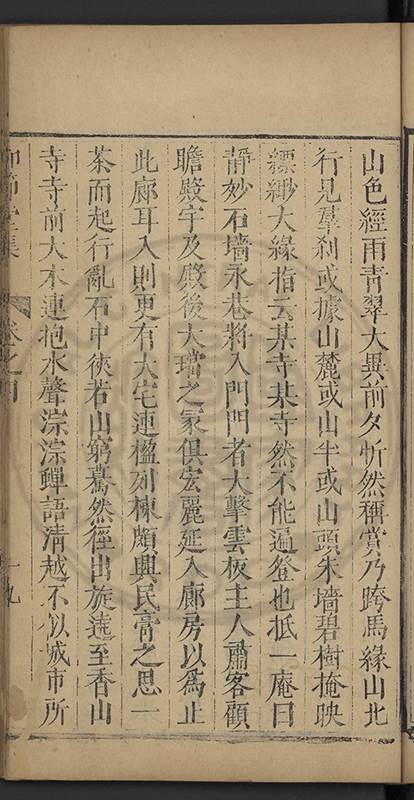 山色經雨青翠大異前夕忻然稱賞乃跨馬緣山北
行見羣刹或據山麓或山半或山頭朱墻碧樹掩映
縹緲大緣指云某寺某寺然不能遍登也抵一庵曰
靜妙石墻永巷將入門門者大擊雲板主人肅客顧
瞻殿宇及殿後大璫之冢俱宏麗延入廊房以爲止
此廊耳入則更有大宅連楹刻棟頗興民膏之思一
茶而起行亂石中狹若山窮驀然徑出旋遶至香山
寺寺前大木連抱水聲淙淙蟬語淸越不似城市所
卷之四
十九